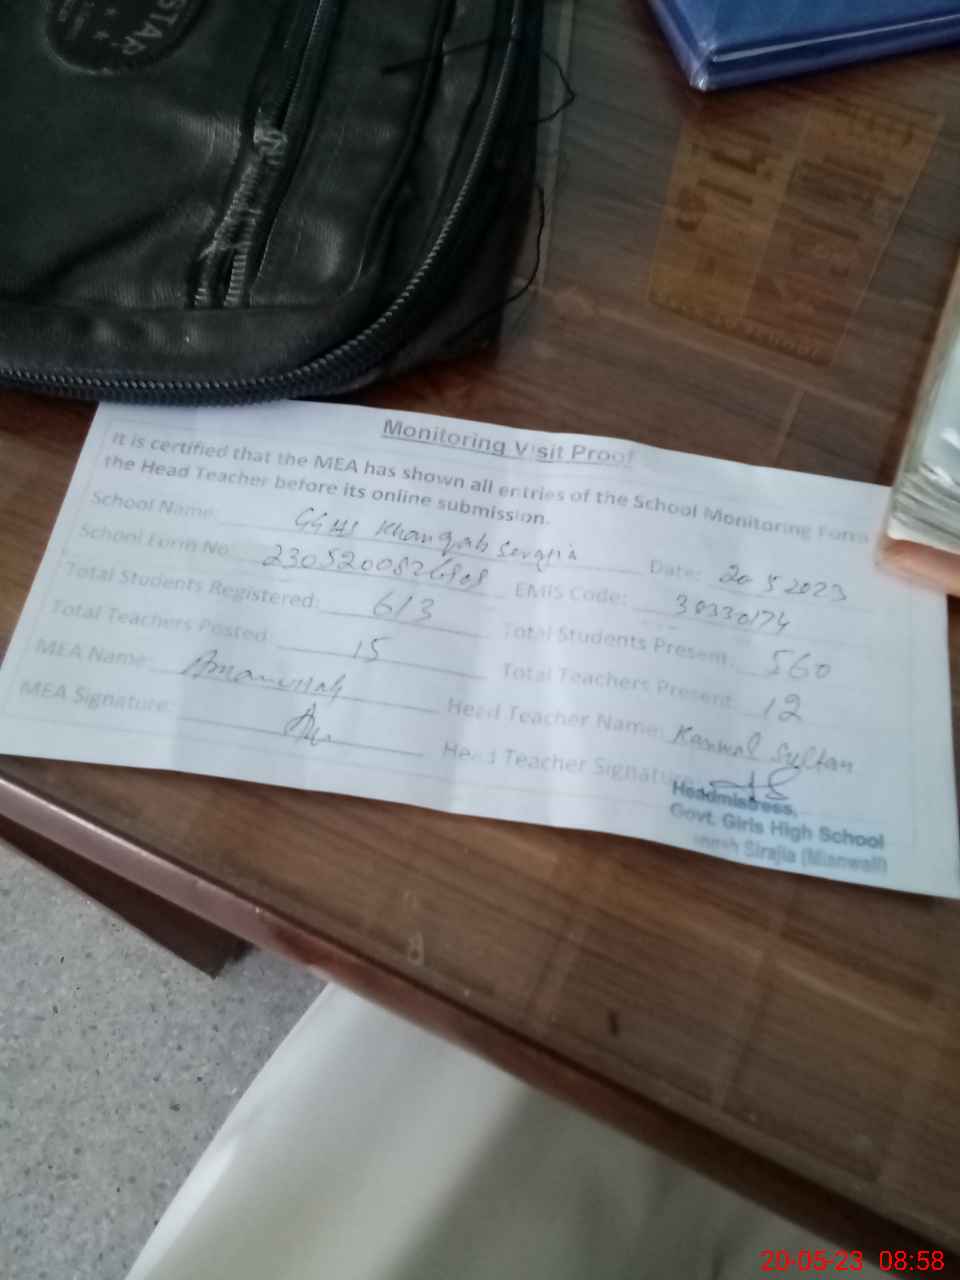 STAR
Monitoring Visit Proof
It is certified that the MEA has shown all entries of the School Monitoring Form
the Head Teacher before its online submission.
School Name: GGHS Khanqah Serajia Date: 20 5 2023
School Form No: EMIS Code: 30330174
Total Students Registered: 613 Total Students Present: 560
Total Teachers Posted: 15 Total Teachers Present: 12
MEA Name: Amanullah Head Teacher Name: Kanwal Sultan
MEA Signature: Head Teacher Signature:
Headmistress,
Govt. Girls High School
Sirajia (Mianwali)
20-05-23 08:58